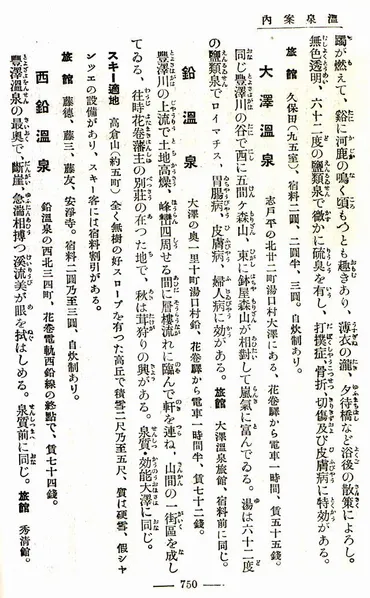 温泉案内
躅が燃えて、谿に河鹿の鳴く頃もつとも趣きあり、薄衣の瀧、夕待橋など浴後の散策によろし。
無色透明、六十二度の鹽類泉で微かに硫臭を有し、打撲症、骨折、切傷及び皮膚病に特効がある。
旅館 久保田(九五室)、宿料二圓、二圓半、三圓。自炊制あり。
大澤溫泉 志戸平の北廿二町湯口村大澤にある、花卷驛から電車一時間、賃五十五錢。
同じ豐澤川の谷で西に五間ヶ森山、東に鉢屋森山が相對して嵐氣に富んでゐる。湯は六十二度
の鹽類泉でロイマチス、胃腸病、皮膚病、婦人病に効がある。旅館 大澤溫泉旅館、宿料前に同じ。
鉛溫泉 大澤の奥一里十町湯口村鉛、花卷驛から電車一時間半、賃七十二錢。
豐澤川の上流で土地高燥、峰巒四周せる間に層樓流れに臨んで軒を連ね、山間の一街區を成し
てゐる、往時花卷藩主の別莊の在つた地で、秋は茸狩りの興がある。泉質・効能大澤に同じ。
スキー適地 高倉山(約五町)全く無樹の好スロープを有つた高丘で積雪二尺乃至五尺、質は硬雪、假シャ
ンツエの設備があり、スキー客には宿料割引がある。
旅館 藤德、藤三、藤友、安淨寺。宿料二圓乃至三圓、自炊制あり。
西鉛溫泉 鉛溫泉の西北三四町、花卷電軌西鉛線の終點で、賃七十四錢。
豐澤溫泉の最奥で、斷崖、急湍相摶つ溪流美が眼を拭はしめる。泉質前に同じ。旅館 秀淸館。
750